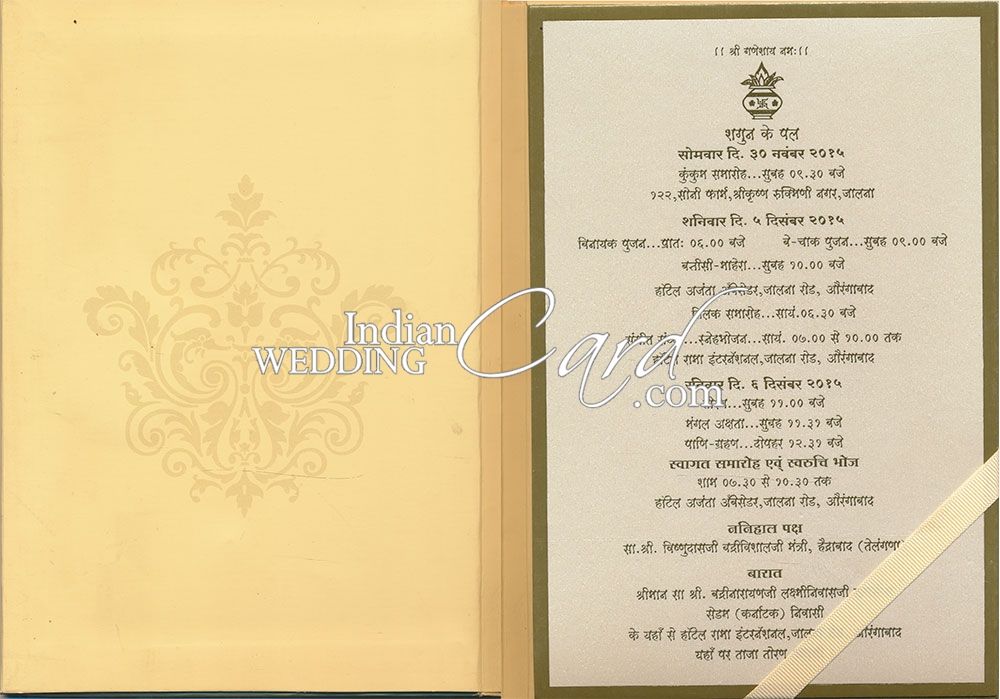 ।। श्री गणेशाय नमः।।
शगुन के पल
सोमवार दि. ३० नवंबर २०१५
कुंकुम समारोह...सुबह ०९.३० बजे
१२२,सीनी फार्म,श्रीकृष्ण रुक्मिणी नगर,जालना
शनिवार दि. ५ दिसंबर २०१५
बिनायक पुजन...प्रातः ०६.०० बजे बे-चाक पुजन...सुबह ०९.०० बजे
बत्तीसी-माहेरा...सुबह १०.०० बजे
हॉटेल अजंता अँबेसेडर,जालना रोड, औरंगाबाद
तिलक समारोह...सायं.०६.३० बजे
संगीत ...स्नेहभोजन...सायं. ०७.०० से १०.०० तक
हॉटेल रामा इंटरनॅशनल,जालना रोड, औरंगाबाद
रविवार दि. ६ दिसंबर २०१५
...सुबह ११.०० बजे
मंगल अक्षता...सुबह ११.३१ बजे
पाणि-ग्रहण...दोपहर १२.३१ बजे
स्वागत समारोह एवं स्वरुचि भोज
शाम ०७.३० से १०.३० तक
हॉटेल अजंता अँबेसेडर,जालना रोड, औरंगाबाद
ननिहाल पक्ष
सा.श्री. विष्णुदासजी बद्रीविशालजी मंत्री, हैद्राबाद (तेलंगणा)
बारात
श्रीमान सा श्री. बद्रीनारायणजी लक्ष्मीनिवासजी
सेडम (कर्नाटक) निवासी
के यहाँ से हॉटेल रामा इंटरनॅशनल,जालना औरंगाबाद
यहाँ पर ताजा तोरण
Indian
WEDDING Card
.com